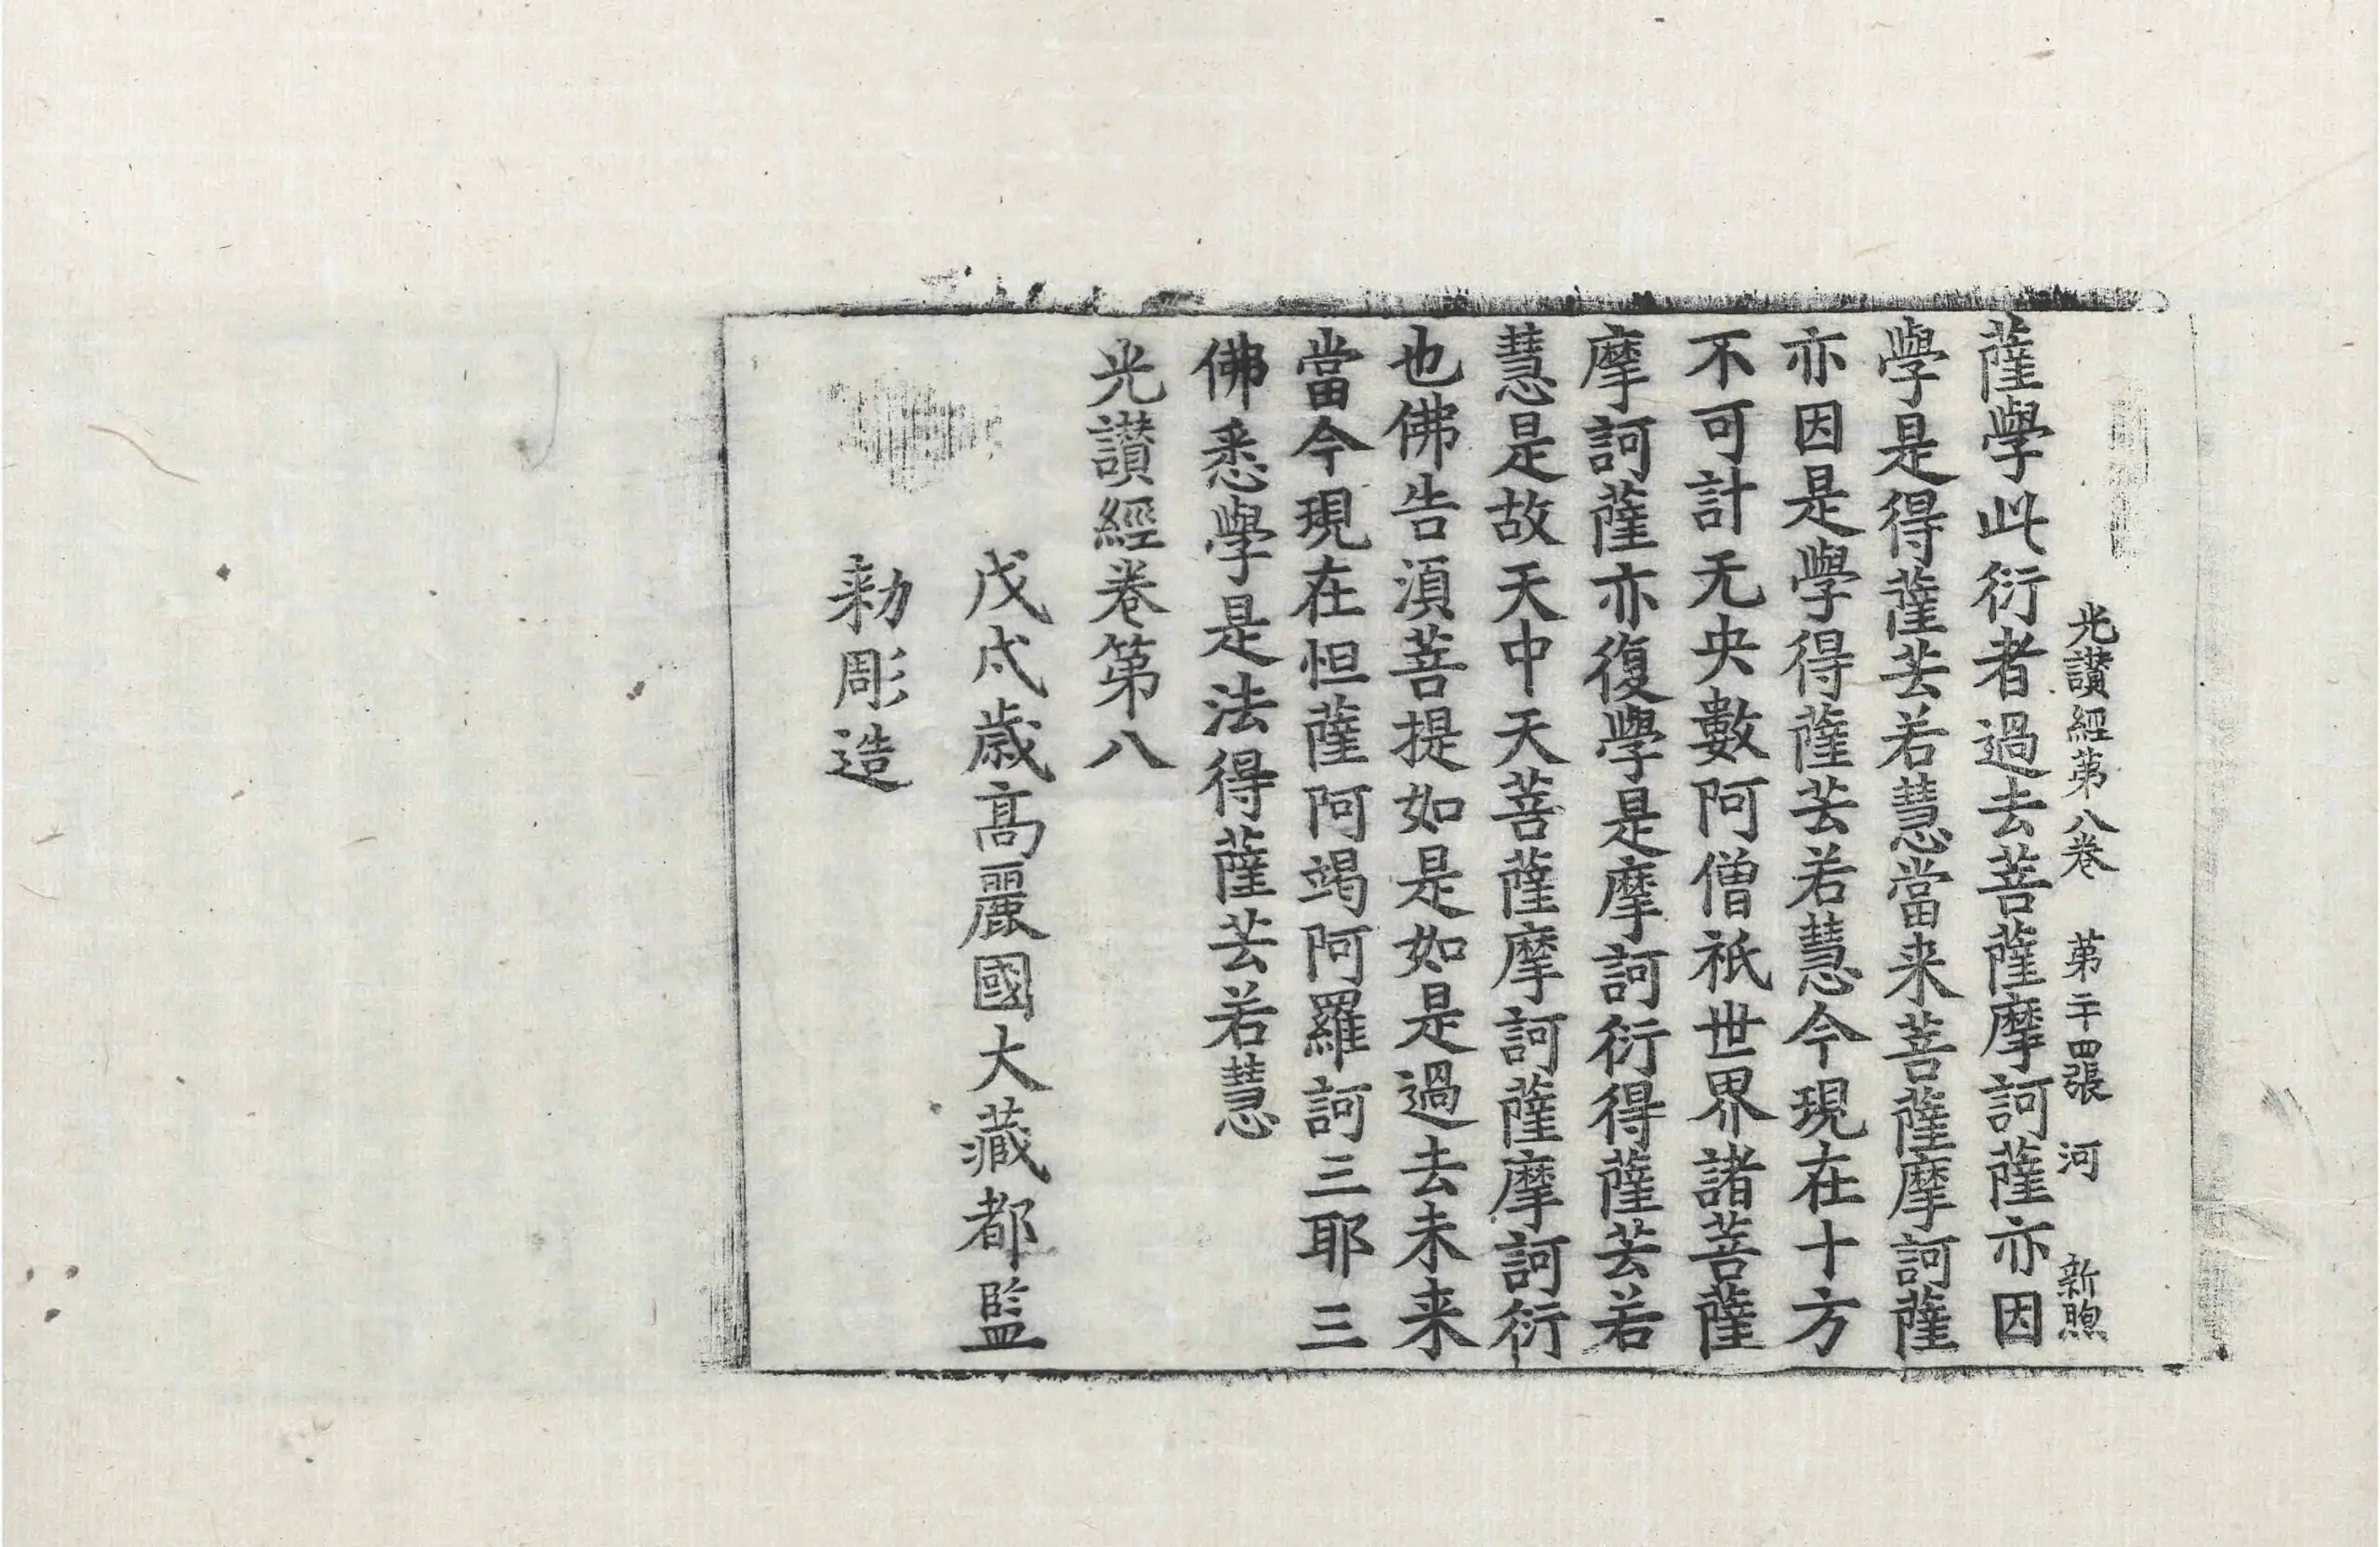 光讃經第八卷 第二十四張 河 新㷩
薩學此衍者過去菩薩摩訶薩亦因
學是得薩芸若慧當来菩薩摩訶薩
亦因是學得薩芸若慧今現在十方
不可計无央數阿僧祇世界諸菩薩
摩訶薩亦復學是摩訶衍得薩芸若
慧是故天中天菩薩摩訶薩摩訶衍
也佛告湏菩提如是如是過去未来
當今現在怛薩阿竭阿羅訶三耶三
佛悉學是法得薩芸若慧
光讃經卷第八
戊戌歲高麗國大藏都監
勑彫造